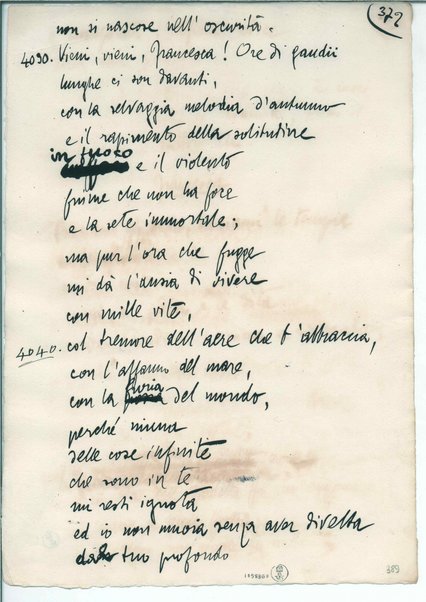 379
non si nascose nell'oscurità.
4030. Vieni, vieni, Francesca! Ore di gaudii
lunghe ci son davanti,
con la selvaggia melodia d'autunno
e il rapimento della solitudine
in fuoco e il violento
fiume che non ha foce
e la sete immortale;
ma pur l'ora che fugge
mi dà l'ansia di vivere
con mille vite,
4040. col tremore dell'aere che t'abbraccia,
con l'affanno del mare,
con la furia del mondo,
perché niuna
delle cose infinite
che sono in te
mi resti ignota
ed io non muoia senza aver divelta
dal tuo profondo
389